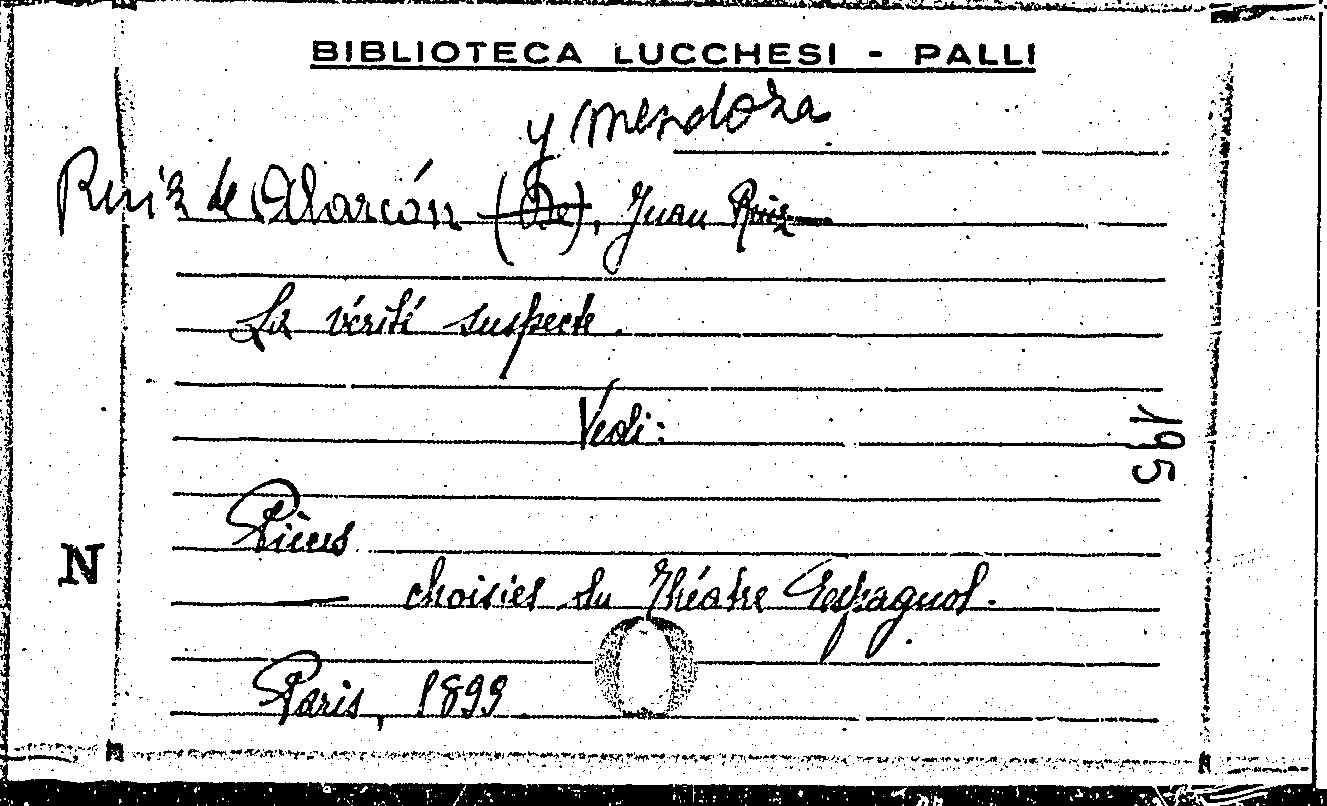 BIBLIOTECA LUCCHESI - PALLI
y Mendoza
Ruiz de Alarcón (De), Juan Ruiz
La vérité suspecte.
Vedi:
195
Pièces
N
choisies du Théatre Espagnol.
Paris, 1899